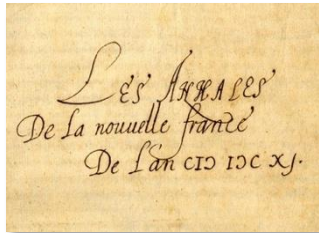 LES ANNALES
De la nouuelle france
De l'an CIↃ IↃC XJ.